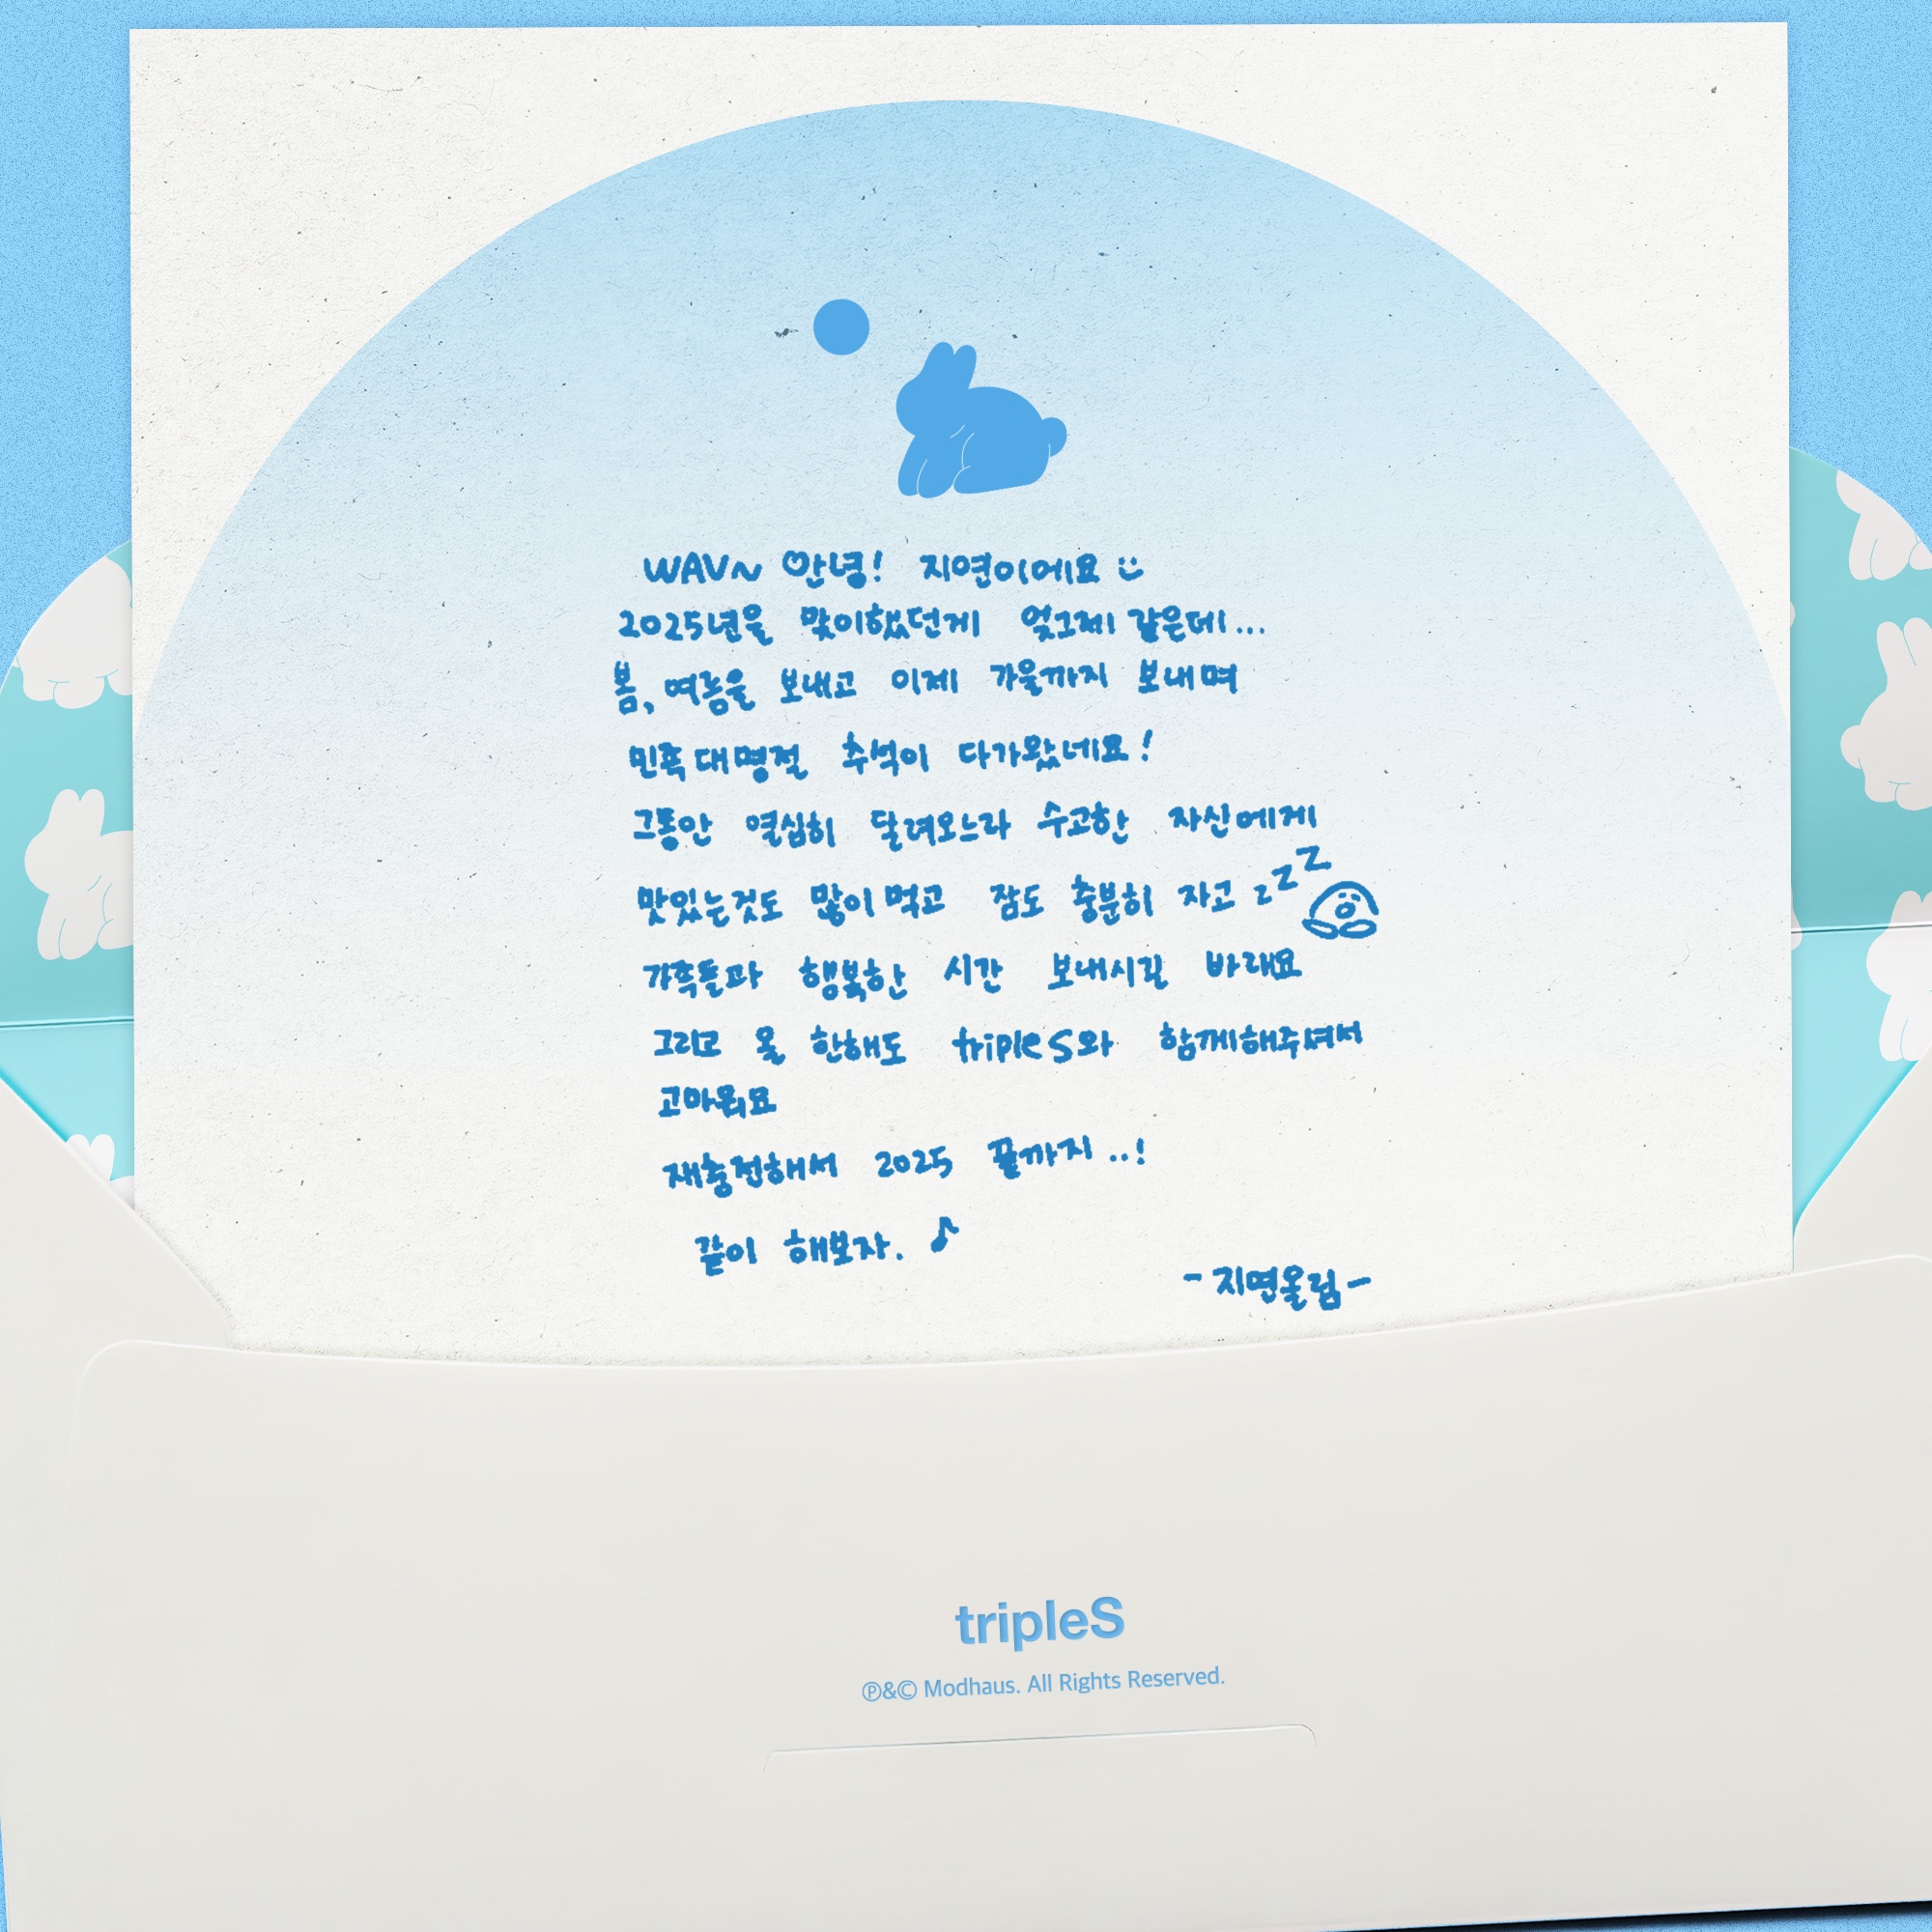 WAV~ 안녕! 지연이에요
2025년을 맞이했던게 엊그제 같은데...
봄, 여름을 보내고 이제 가을까지 보내며
민족대명절 추석이 다가왔네요!
그동안 열심히 달려오느라 수고한 자신에게
맛있는것도 많이먹고 잠도 충분히 자고 zzZ
가족들과 행복한 시간 보내시길 바래요
그리고 올 한해도 tripleS와 함께해주셔서
고마워요
재충전해서 2025 끝까지..!
같이 해보자. ♪
-지연올림-
tripleS
℗&© Modhaus. All Rights Reserved.